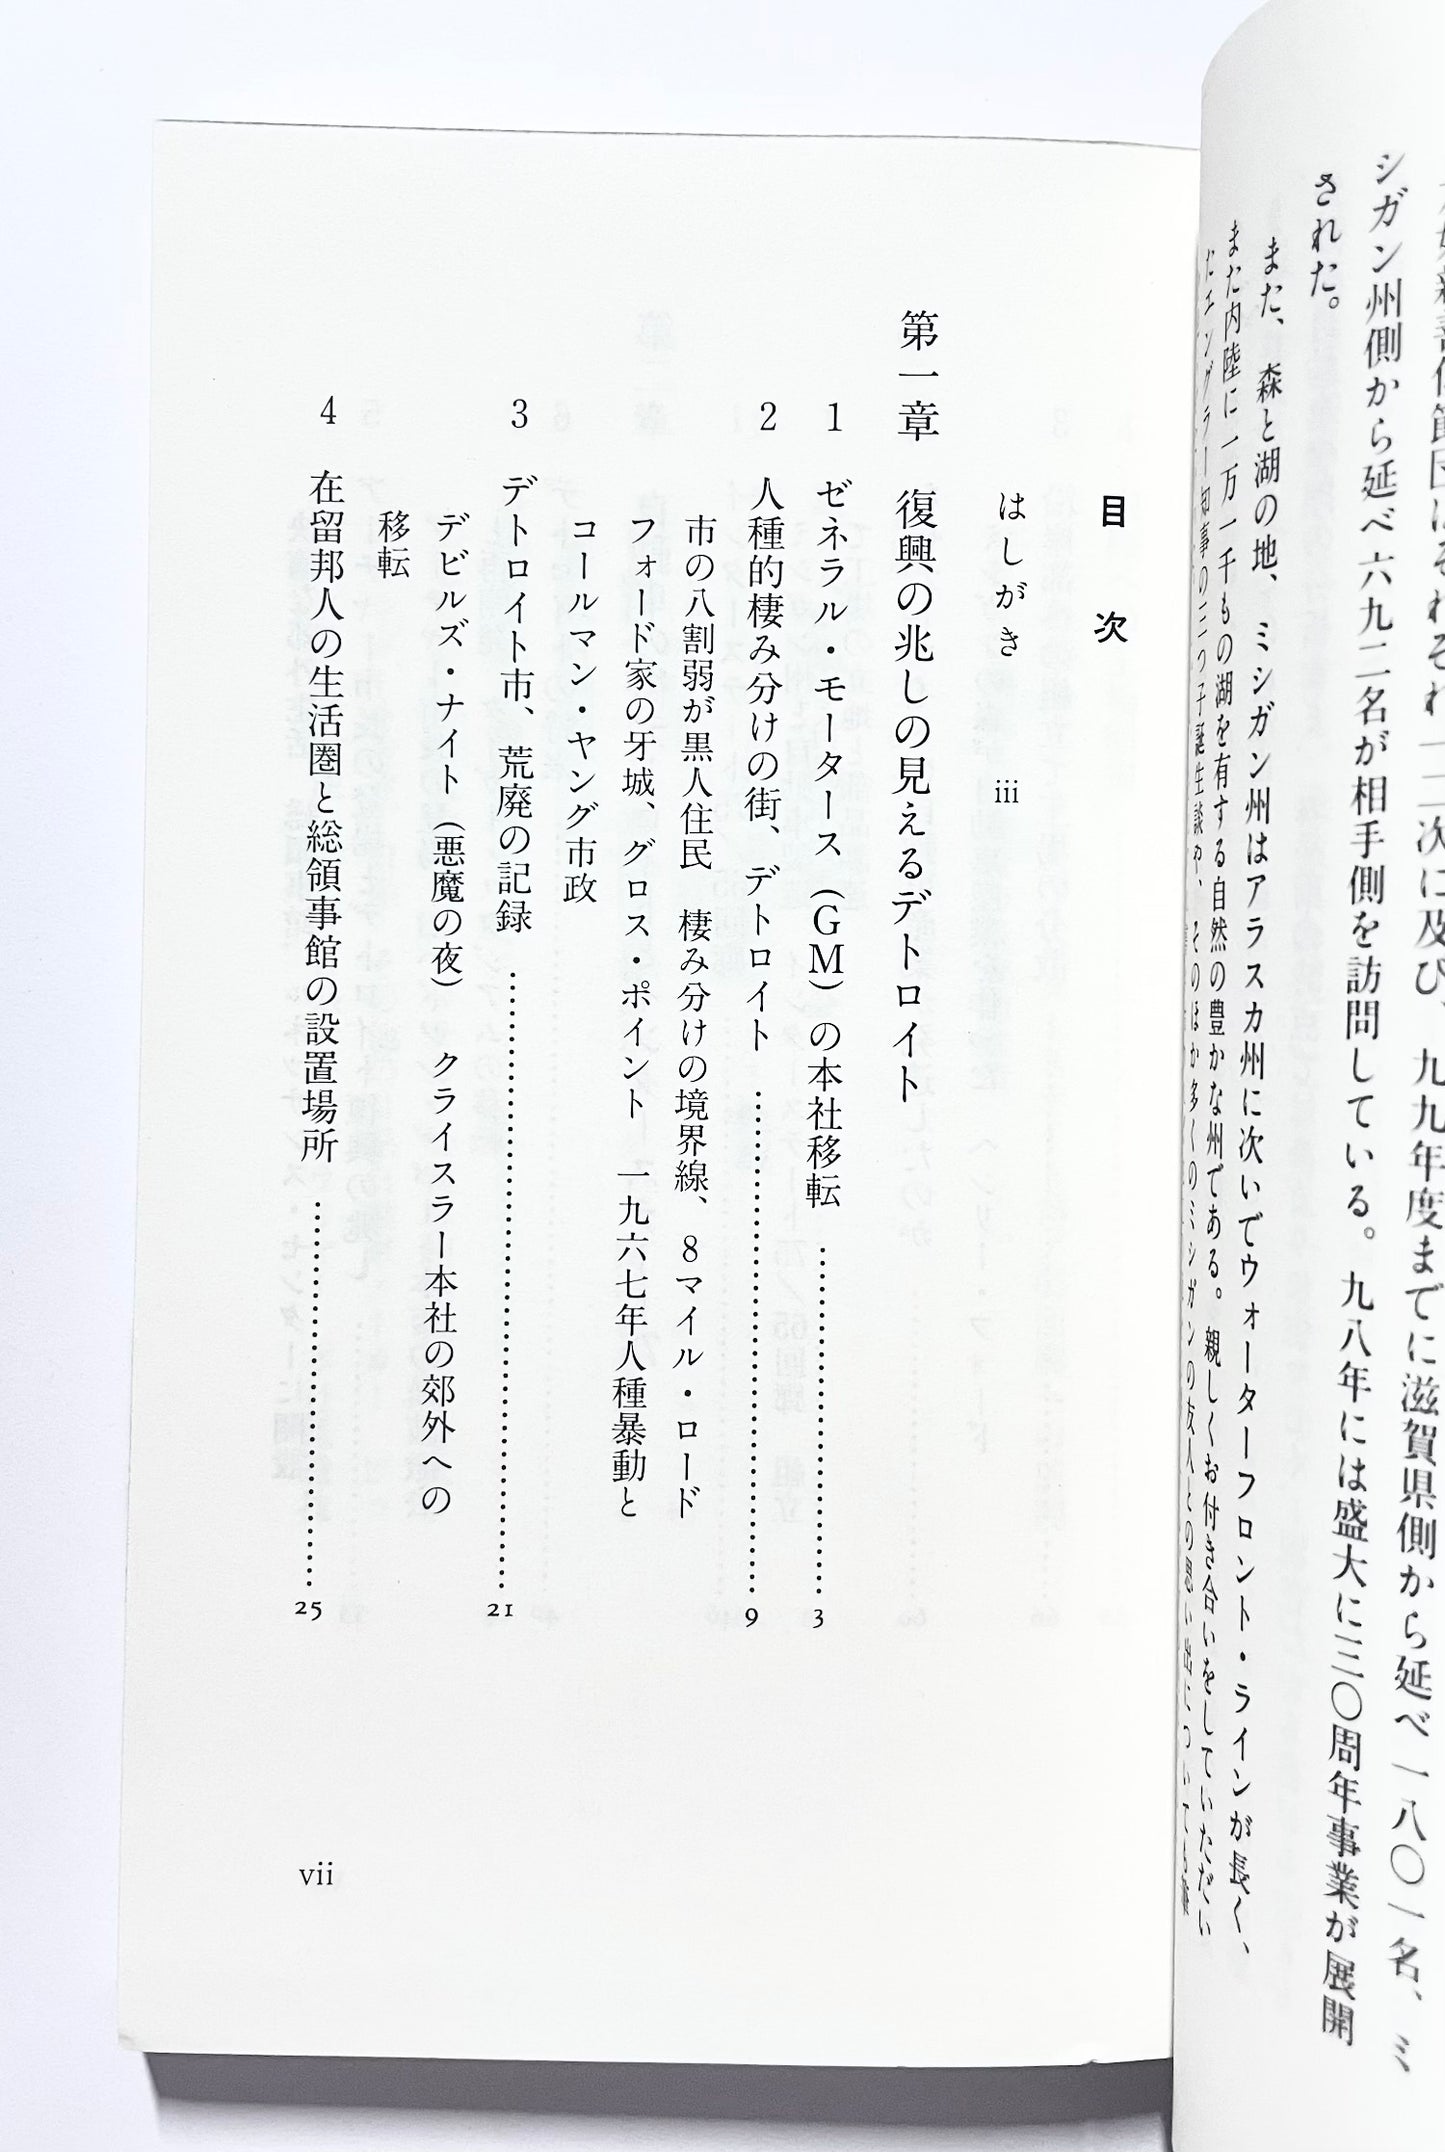 シガン州側から延べ六九二名が相手側を訪問している。九八年には盛大に三〇周年事業が展開
された。
また、森と湖の地、ミシガン州はアラスカ州に次いでウォーターフロント・ラインが長く、
また内陸に一万一千もの湖を有する自然の豊かな州である。親しくお付き合いをしていただい
たエングラー知事の三つ子誕生談や、そのほか多くのミシガンの友人との思い出について
目次
はしがき iii
第一章 復興の兆しの見えるデトロイト
1 ゼネラル・モータース（GM）の本社移転 3
2 人種的棲み分けの街、デトロイト 9
市の八割弱が黒人住民 棲み分けの境界線、8マイル・ロード
フォード家の牙城、グロス・ポイント 一九六七年人種暴動と
コールマン・ヤング市政
3 デトロイト市、荒廃の記録 21
デビルズ・ナイト（悪魔の夜） クライスラー本社の郊外への
移転
4 在留邦人の生活圏と総領事館の設置場所 25
vii